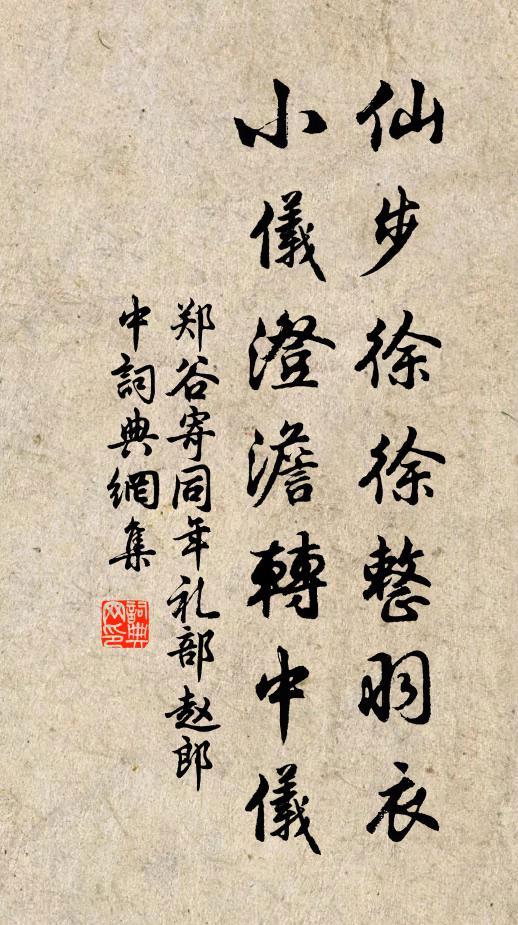 仙步徐徐整羽衣
小儀澄澹轉中儀
郑谷寄同年礼部赵郎
中詞典網集
詞典网印